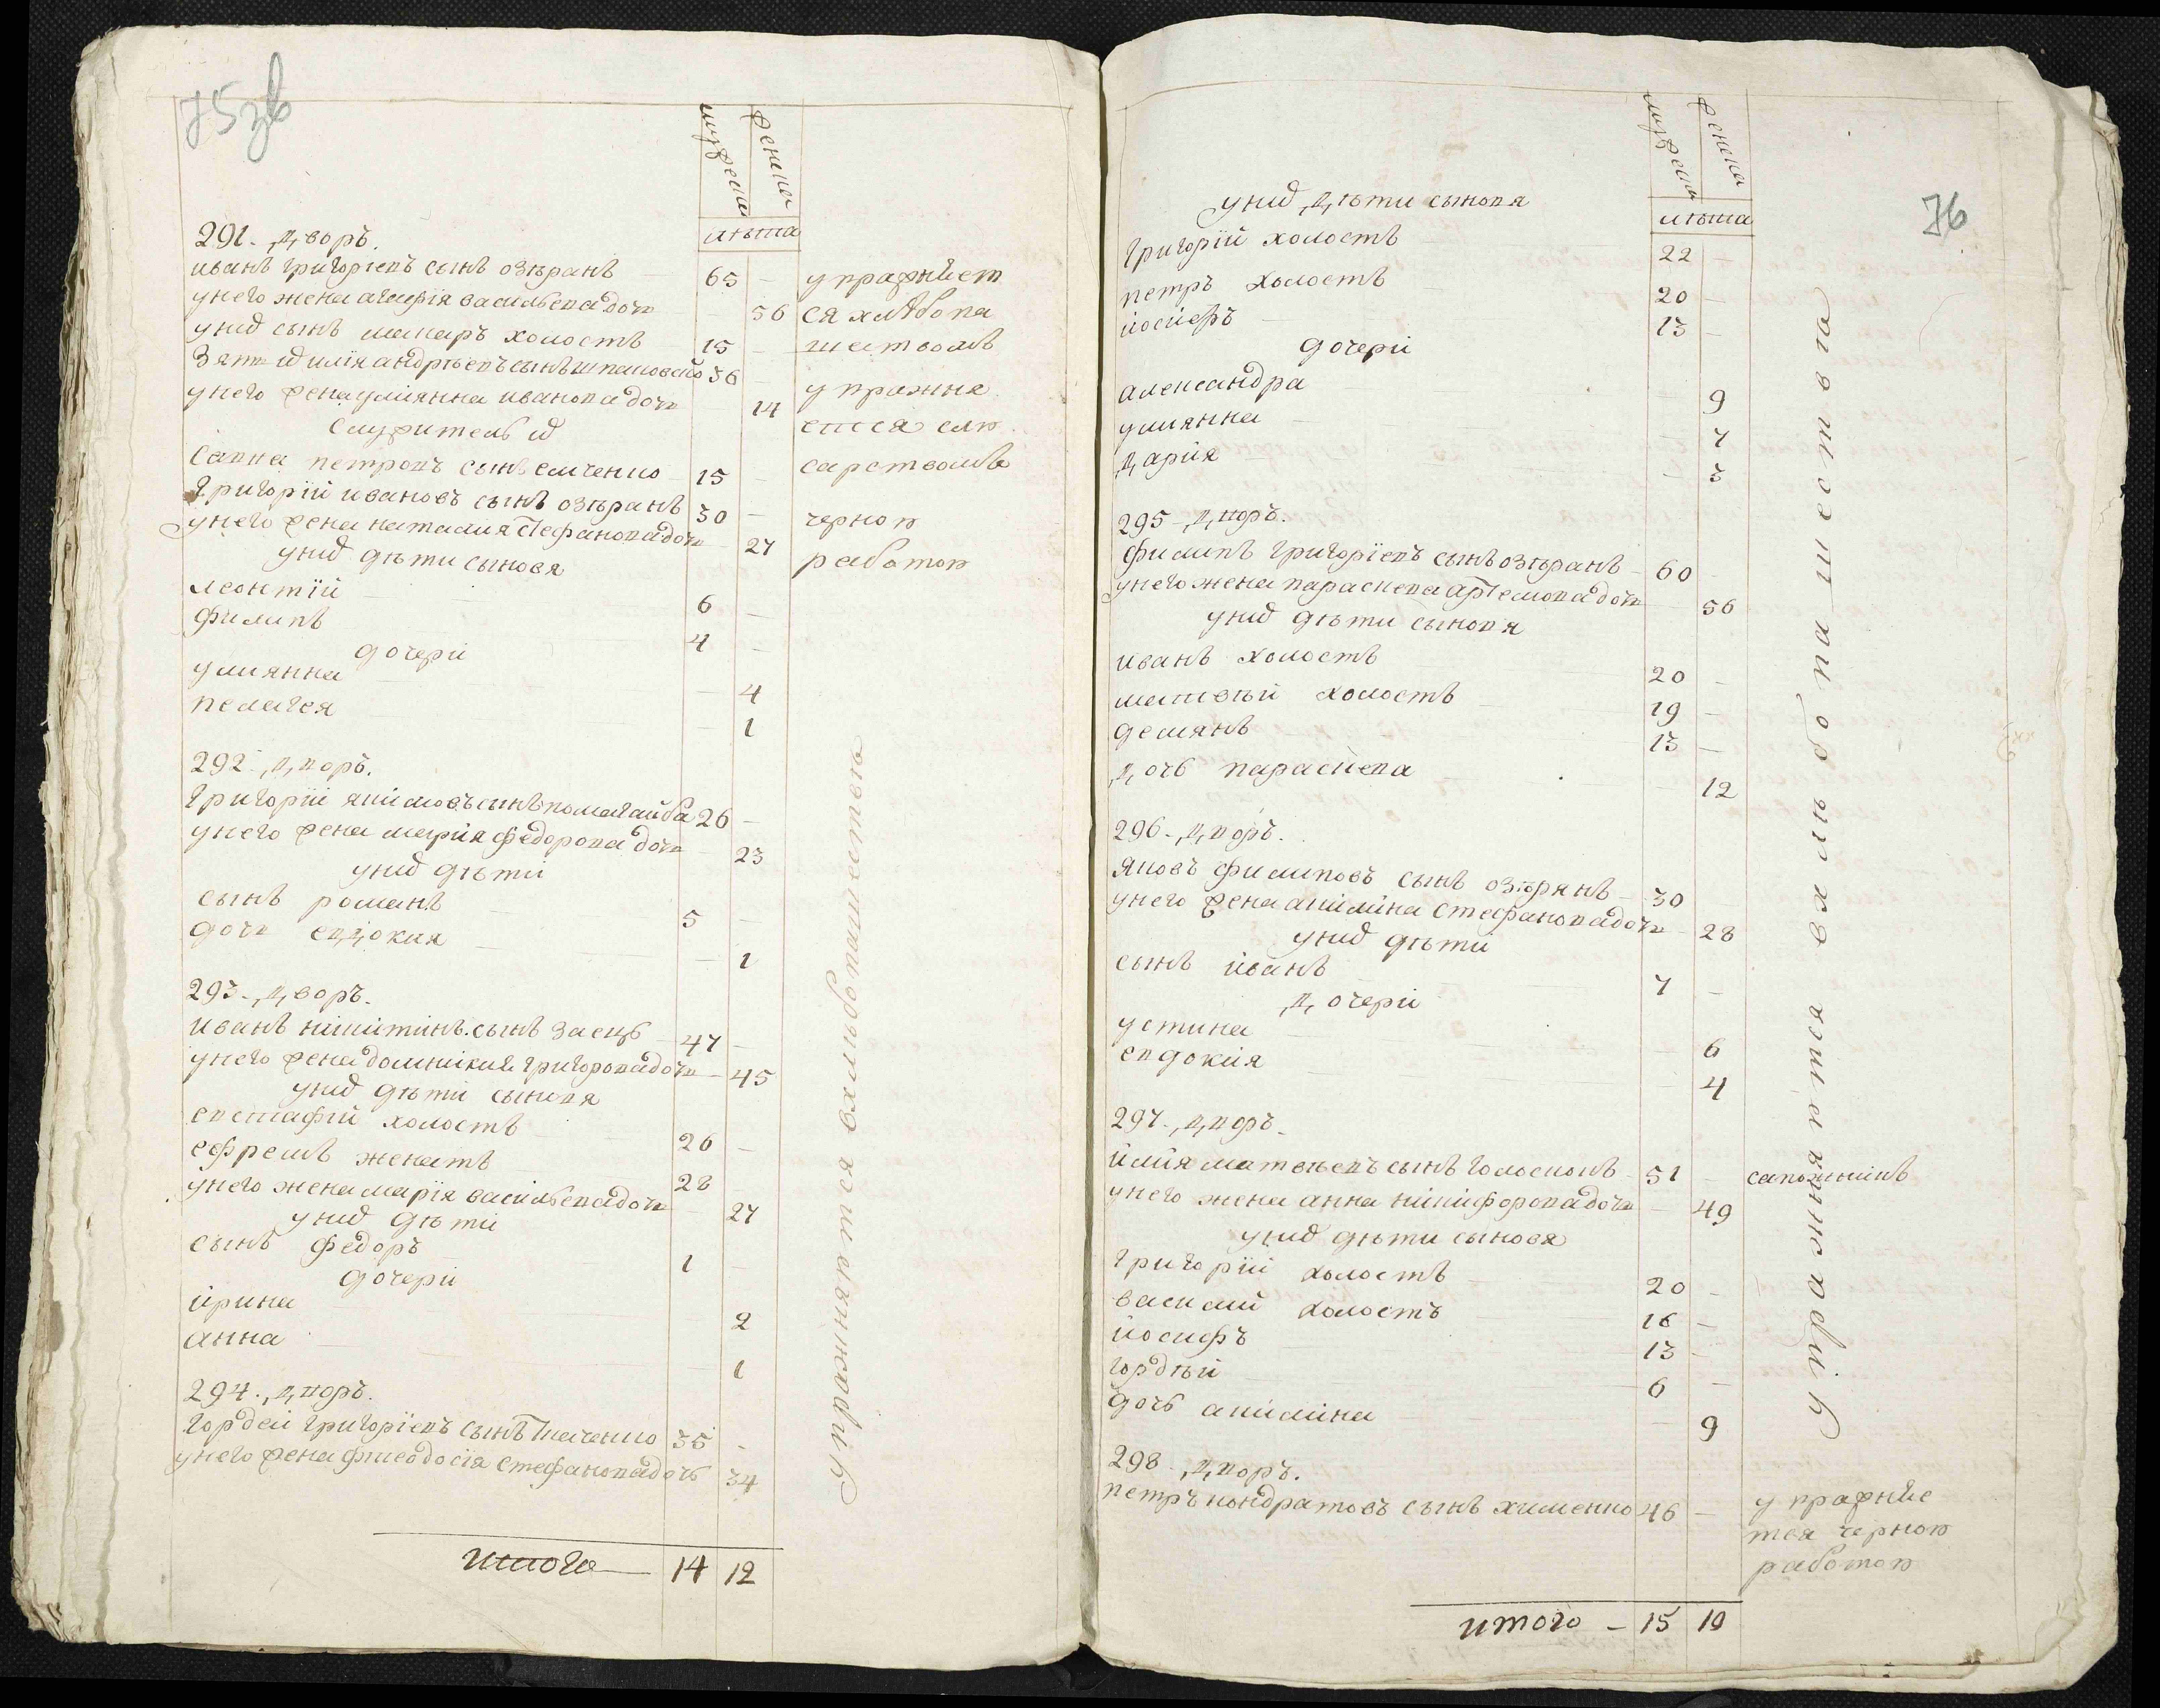 75 зв
мужеска
женска
лѣта
291. дворъ.
иванъ григоріевъ сынъ озѣранъ 65 – упражнѣет
унего жена агафія васильева дочь – 56 ся хлѣбопа
унихъ сынъ макаръ холостъ 15 – шествомъ
Зять ихъ илія андрѣевъ сынъ 36 –
унего жена улиянна иванова дочь – 14 упражня
Служитель ихъ ется слю
Савка петровъ сынъ 15 – сарствомъ
Григорій ивановъ сынъ озѣранъ 30 – черною
унего жена наталия Стефанова дочь – 27 работою
унихъ дѣти сыновя
леонтій 6 –
филипъ 4 –
дочери
улиянна – 4
пелагея – 1
292. дворъ.
Григорій якимовъ сынъ помагайба 26 –
унего жена марія федорова дочь – 23
унихъ дѣти
сынъ романъ 5 –
дочь евдокия – 1
293. дворъ.
иванъ никитинъ сынъ заецъ 47 –
унего жена домникия григорова дочь – 45
унихъ дѣти сыновя
евстафій холостъ 26 –
ефремъ женатъ 28
унего жена марія васильева дочь – 27
унихъ дѣти
сынъ федоръ 1 –
дочери
ирина – 2
анна – 1
294. дворъ.
гордей григоріевъ сынъ Ткаченко 35 –
унего жена феодосія стефанова дочь 34
упражняются вхлѣбопашествѣ
итого 14 12
76
мужеска
женска
лѣта
унихъ дѣти сыновя
григорій холостъ 22 –
петръ холостъ 20 –
иосифъ 13 –
дочери
александра – 9
улиянна – 7
дария – 3
295 дворъ.
филипъ григоріевъ сынъ озѣранъ 60 –
унего жена параскева артемова дочь – 56
унихъ дѣти сыновя
иванъ холостъ 20 –
матвѣй холостъ 19 –
демянъ 13 –
дочь параскева – 12
296. дворъ.
яковъ филиповъ сынъ озѣрянъ 30
унего жена акилина стефанова дочь – 28
унихъ дѣти
сынъ иванъ 7 –
дочери
устина – 6
евдокия – 4
297. дворъ.
илия матвѣевъ сынъ голосновъ 51 – сапожникъ
унего жена анна никифорова дочь – 49
унихъ дѣти сыновя
григорій холостъ 20 –
василий холостъ 16 –
иосифъ 13 –
гордѣй 6 –
дочь акилина – 9
298. дворъ.
петръ кондратовъ сынъ хименко 46 – упражнѣе
тся черною
работою
упражняются вхлѣбопашества
итого – 15 10